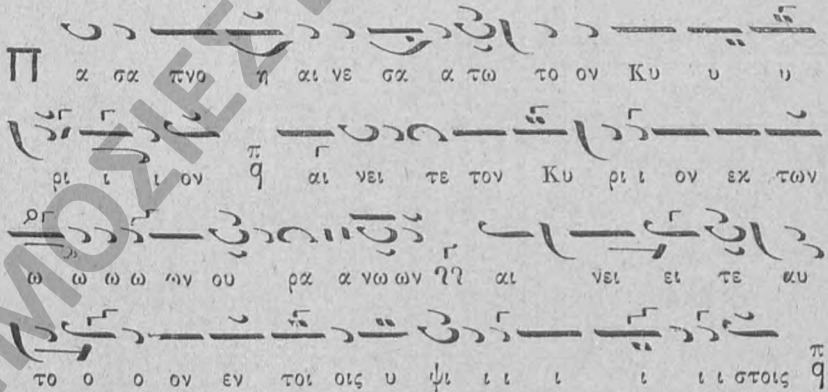 Π α σα πνο η αι νε σα α τω το ον Κυ υ υ
ρι ι ι ον π q αι νει τε τον Κυ ρι ι ον εκ των
ω ω ω ω ων ου ρα α νω ων αι νει ει τε αυ
το ο ο ον εν τοι οις υ ψι ι ι ι ι ι ι στοις π q